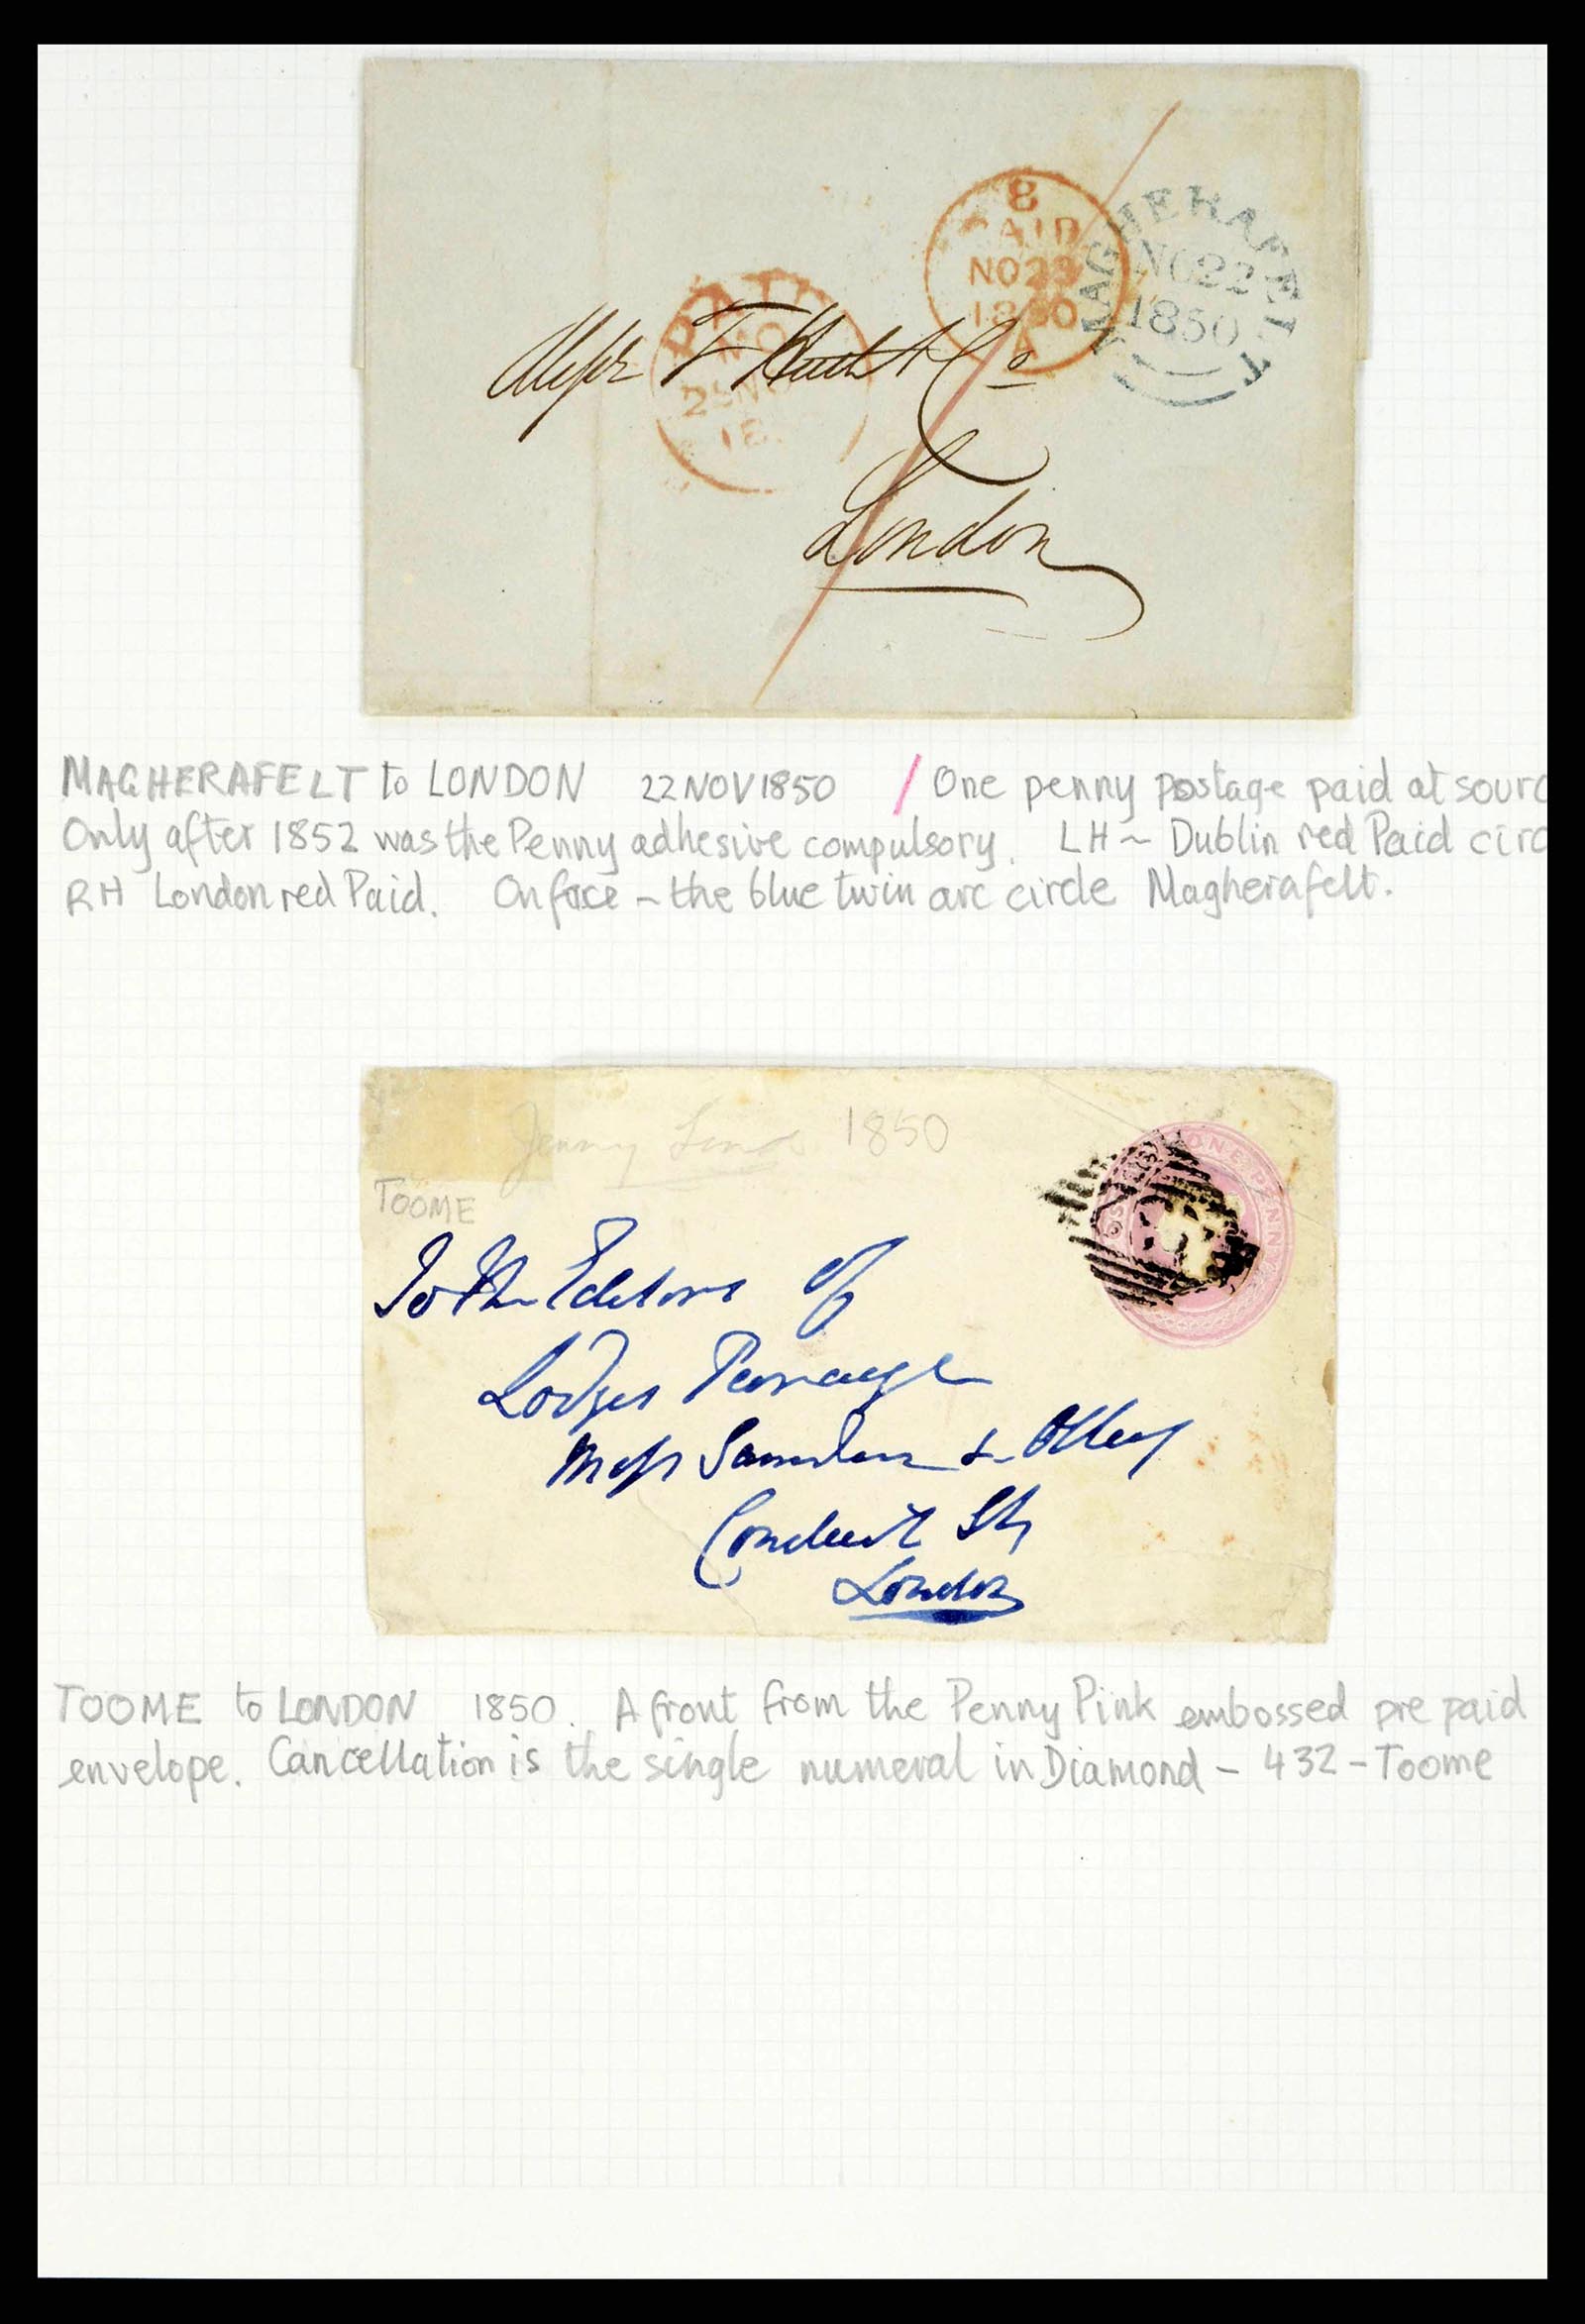 8
PAID
NO 23
1850
A
MAGHERAFELT
NO 22
1850
PAID
NO
18
Messrs F Huth & Co
London
MAGHERAFELT to LONDON 22 NOV 1850 / One penny postage paid at sourc
Only after 1852 was the Penny adhesive compulsory. LH ~ Dublin red Paid circ
RH London red Paid. On face - the blue twin arc circle Magherafelt.
Jenny Lind 1850
ONE PENNY
TOOME
To the Editors of
Lodges Peerage
Messrs Saunders & Otley
Conduit St
London
TOOME to LONDON 1850. A front from the Penny Pink embossed pre paid
envelope. Cancellation is the single numeral in Diamond - 432 - Toome